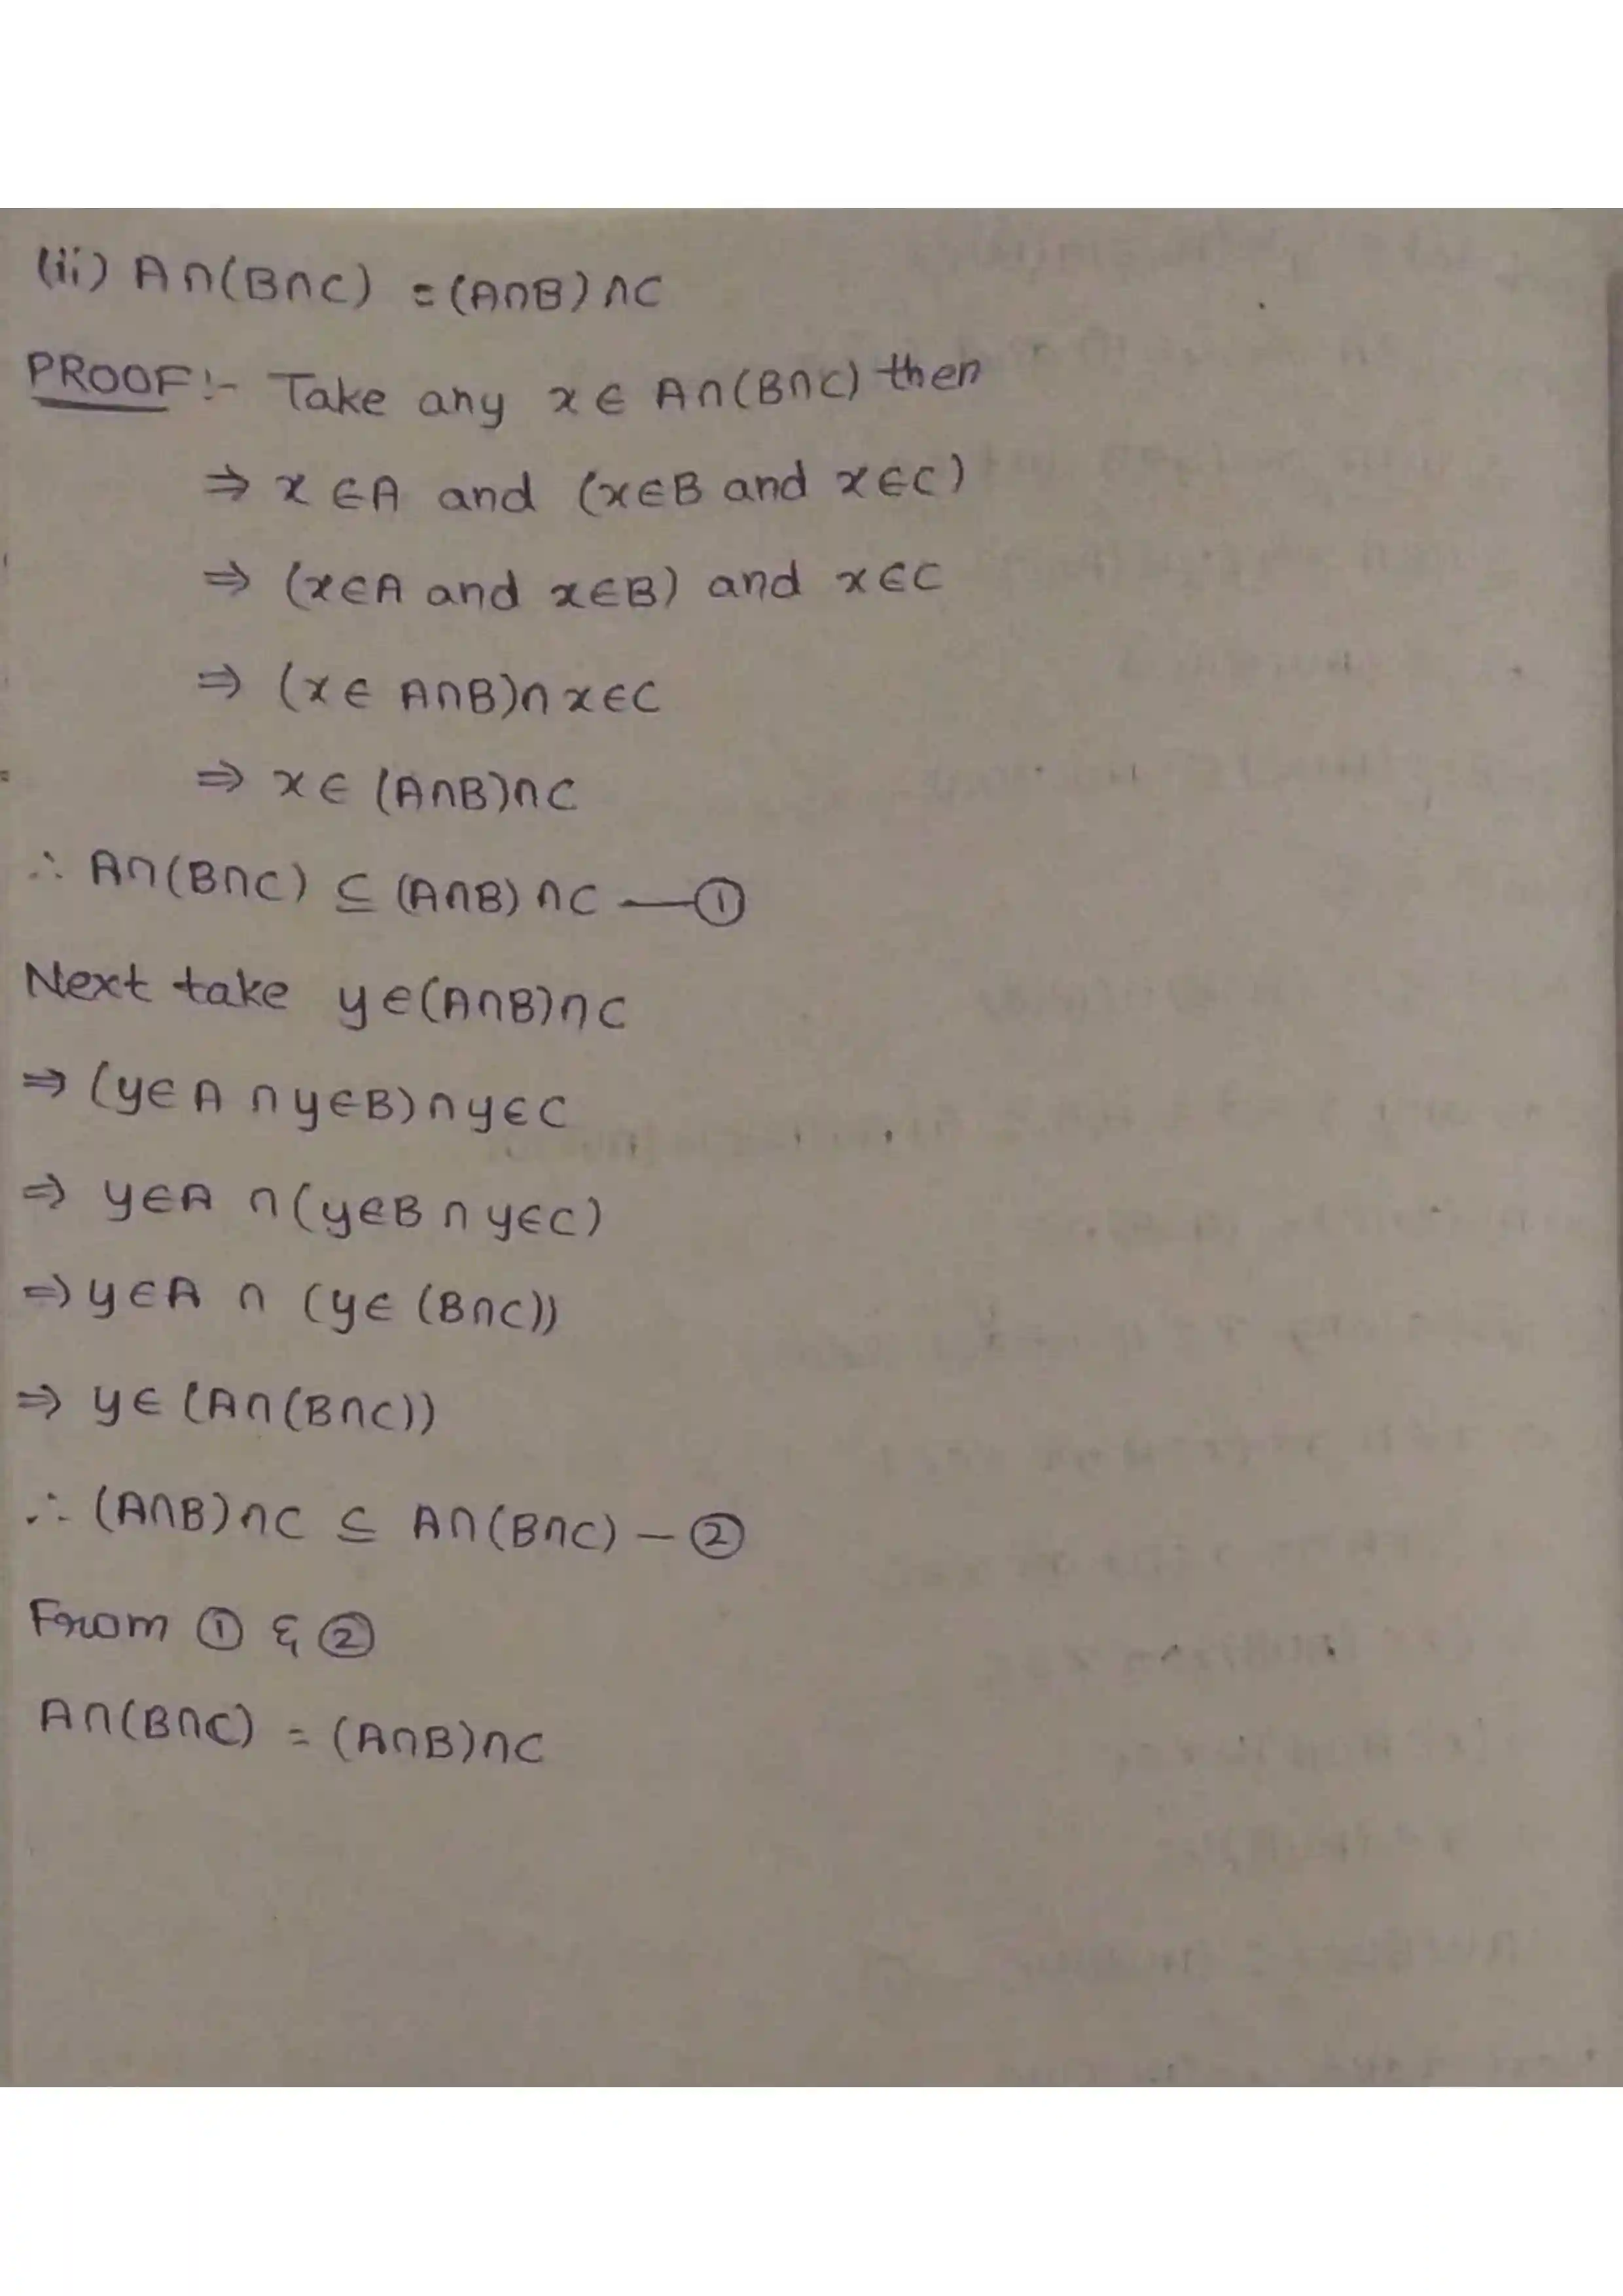 (ii) A∩(B∩C) = (A∩B)∩C
PROOF:- Take any x∈ A∩(B∩C) then
⇒ x∈A and (x∈B and x∈C)
⇒ (x∈A and x∈B) and x∈C
⇒ (x∈ A∩B)∩ x∈C
⇒ x∈ (A∩B)∩C
∴ A∩(B∩C) ⊆ (A∩B)∩C —①
Next take y∈(A∩B)∩C
⇒ (y∈A ∩ y∈B)∩y∈C
⇒ y∈A ∩(y∈B ∩ y∈C)
⇒ y∈A ∩ (y∈ (B∩C))
⇒ y∈ (A∩(B∩C))
∴ (A∩B)∩C ⊆ A∩(B∩C) — ②
From ① & ②
A∩(B∩C) = (A∩B)∩C